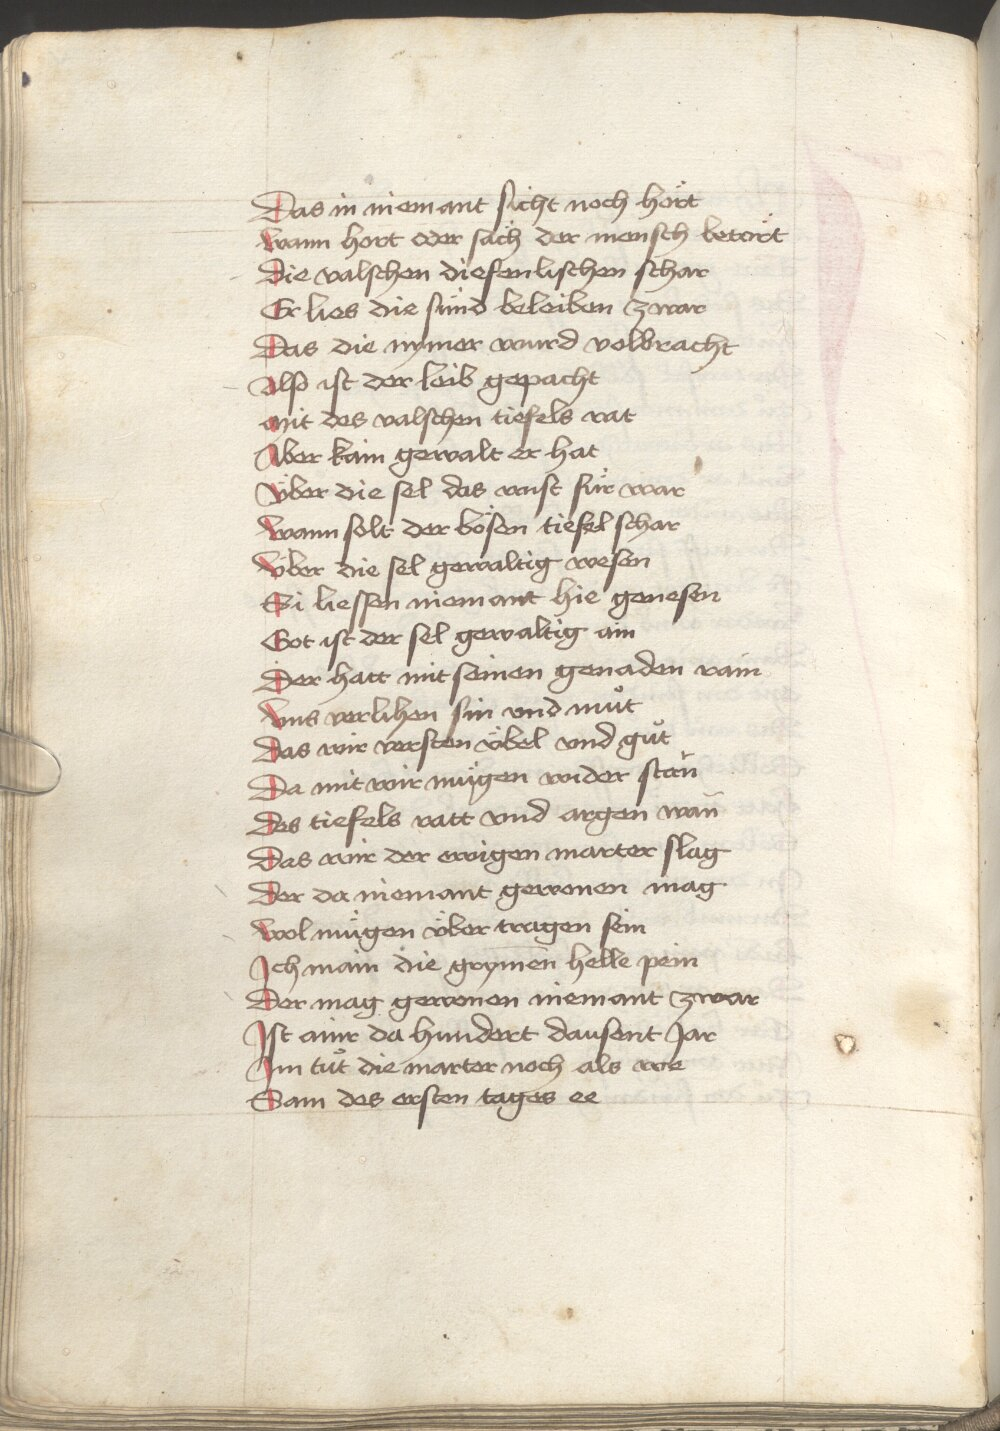 Das in niemant sicht noch hört
Wann hort oder säch der mensch betört
Die valschen diefenlischen schar
Er lies die sünd beleiben zwar
Das die nymer wurd volbracht
Also ist der leib gepacht
Mit des valschen tiefels rat
Aber kain gewalt er hat
Über die sel das wist für war
Wann solt der bösen tiefel schar
Über die sel gewaltig wesen
Si liessen niemant hie genesen
Got ist der sel gewaltig ain
Der hatt mit seinen genaden rain
Vns verlihen sin vnd muͦt
Das wir versten übel vnd guͦt
Da mit wir mügen wider stan̄
Des tiefels ratt vnd argen wan̄
Das wir der ewigen marter slag
Der da niemant gewonen mag
Wol mügen über tragen sein
Ich main die grymen̄ helle pein
Der mag gewonen niemant zwar
Ist ainr da hundert dausent Jar
Im tuͦt die marter noch als we
Sam des ersten tages ee